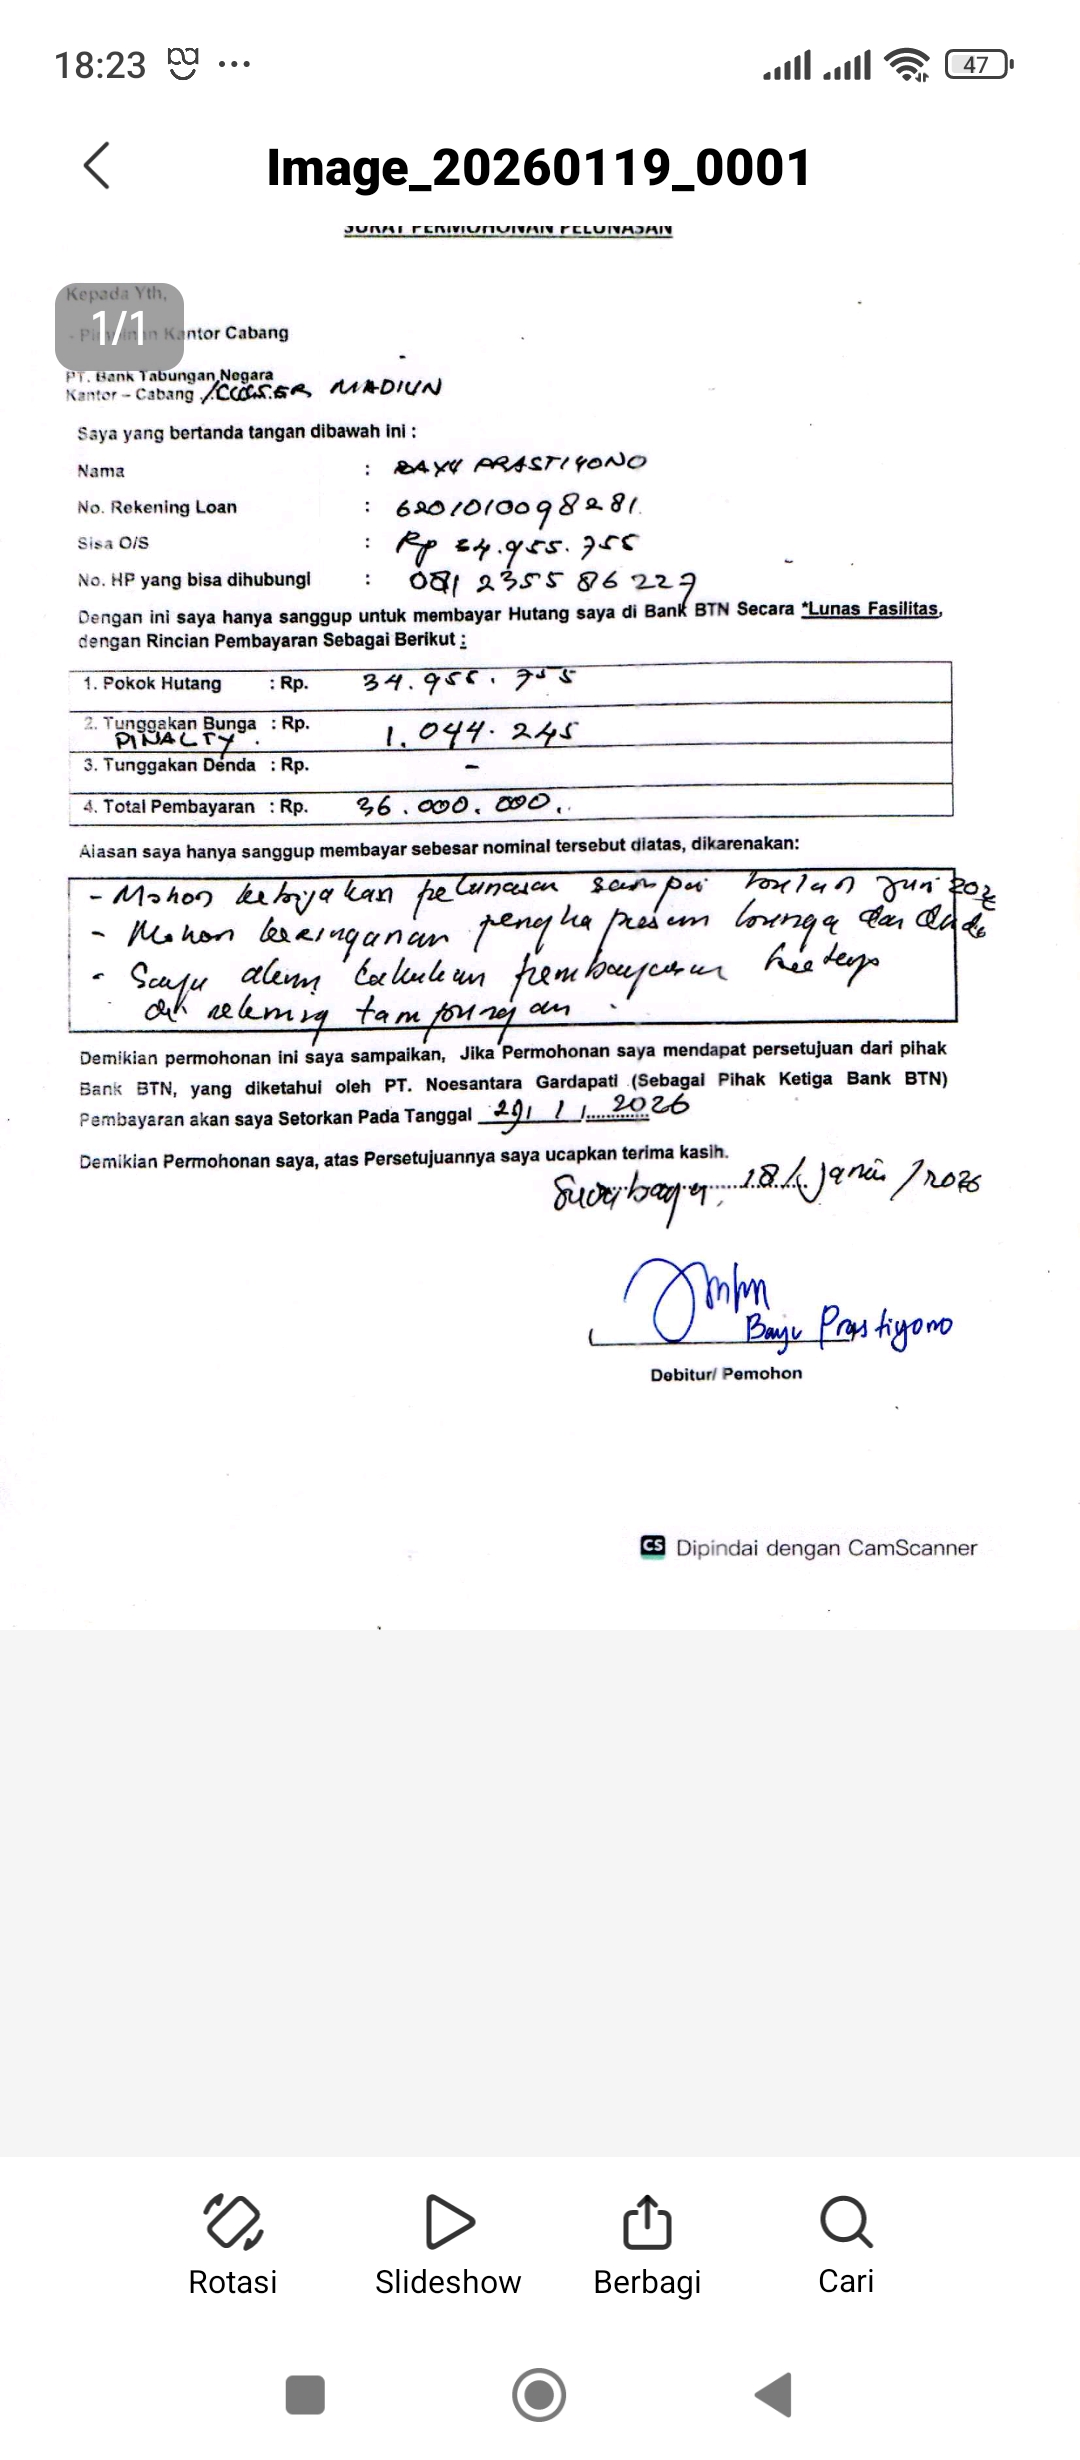 18:23 ...
47
Image_20260119_0001
SURAT PERMOHONAN PELUNASAN
Kepada Yth,
1/1
- Pimpinan Kantor Cabang
PT. Bank Tabungan Negara
Kantor – Cabang MADIUN
Saya yang bertanda tangan dibawah ini :
Nama : BAYU PRASTIYONO
No. Rekening Loan : 6201010098281
Sisa O/S : Rp 34.955.755
No. HP yang bisa dihubungi : 081 2355 86 227
Dengan ini saya hanya sanggup untuk membayar Hutang saya di Bank BTN Secara *Lunas Fasilitas,
dengan Rincian Pembayaran Sebagai Berikut :
1. Pokok Hutang : Rp. 34.955.755
2. Tunggakan Bunga : Rp. 1.044.245
PINALTY .
3. Tunggakan Denda : Rp. -
4. Total Pembayaran : Rp. 36.000.000.
Alasan saya hanya sanggup membayar sebesar nominal tersebut diatas, dikarenakan:
- Mohon kebijakan pelunasan sampai bulan
- Mohon keringanan penghapusan bunga dan denda
- Saya lakukan pembayaran
rekening tampungan .
Demikian permohonan ini saya sampaikan, Jika Permohonan saya mendapat persetujuan dari pihak
Bank BTN, yang diketahui oleh PT. Noesantara Gardapati (Sebagai Pihak Ketiga Bank BTN)
Pembayaran akan saya Setorkan Pada Tanggal 29/ 1 / 2026
Demikian Permohonan saya, atas Persetujuannya saya ucapkan terima kasih.
Surabaya, 18 / / 2026
Bayu Prastiyono
Debitur/ Pemohon
CS Dipindai dengan CamScanner
Rotasi
Slideshow
Berbagi
Cari